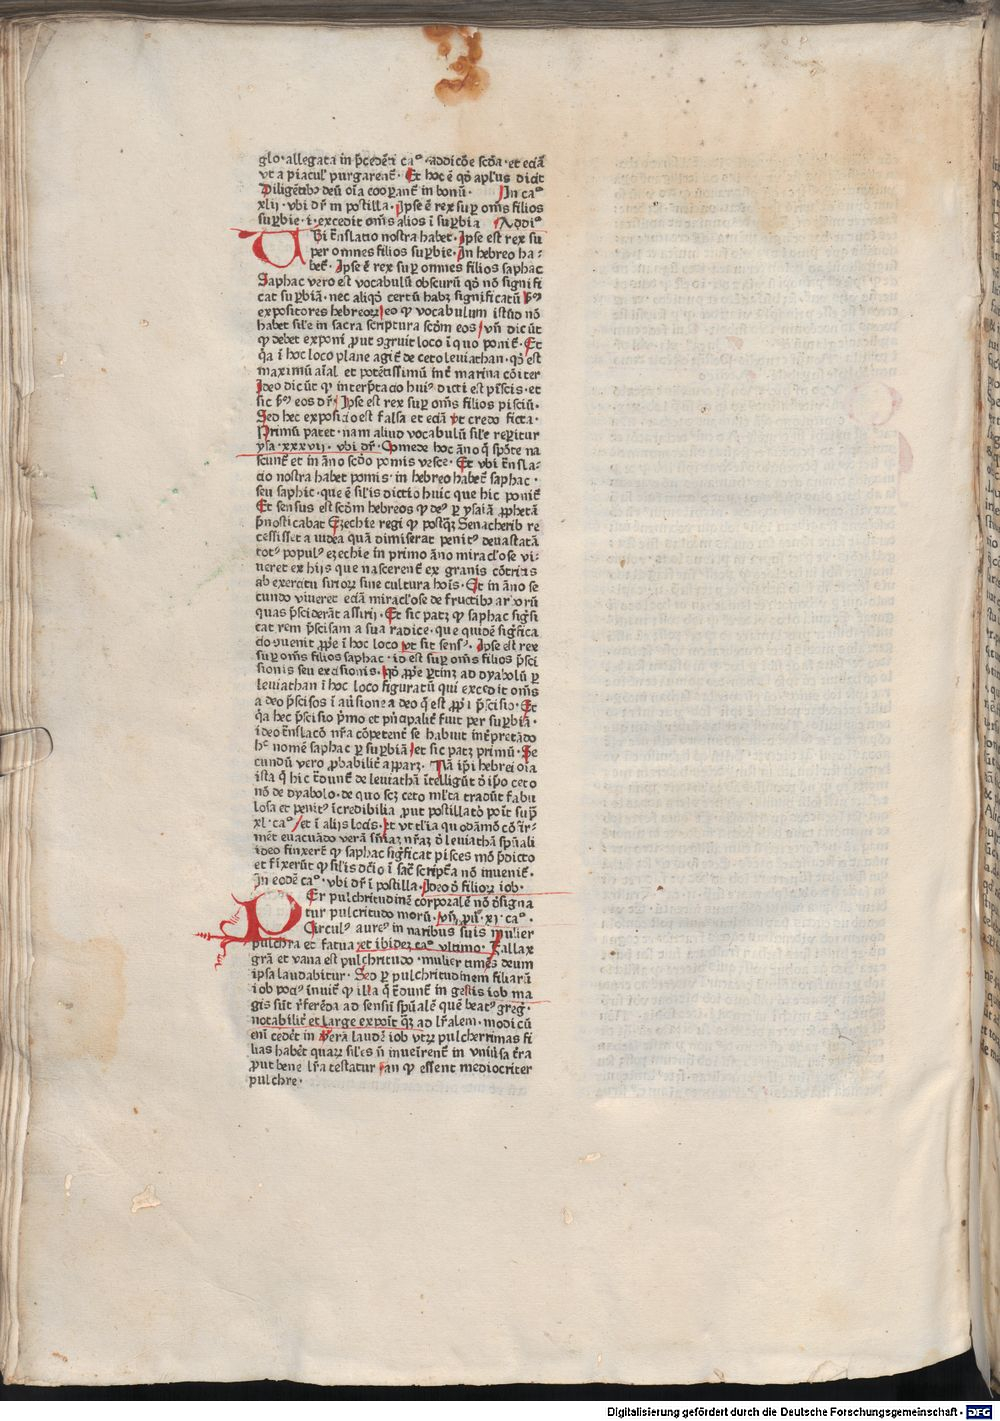 glo· allegata in p̄cedēti ca° ·addicōe scd̄a· et eciā
vt a piacul' purgarent̄· Et hoc ē qd̄ apl'us dicit
Diligētib9 deū oīa cooꝑant̄ in bonū· In ca°
xlij· vbi dr̄ in postilla· Ipse ē rex suꝑ om̄s filios
suꝑbie·i· excedit om̄s alios ī suꝑbia Addi°
Ubi t̄nslatio nostra habet· Ipse est rex su
per omnes filios suꝑbie· In hebreo ha-
bet̄· Ipse ē rex suꝑ omnes filios saphac
Saphac vero est vocabulū obscurū qd̄ nō signifi
cat suꝑbiā· nec aliqd̄ certū habꝫ significatū ẜm
expositores hebreoꝝ eo ꝙ vocabulum istud nō
habet sil'e in sacra scriptura scd̄m eos vn̄ dicūt
ꝙ debet exponi ꝓut ꝯgruit loco ī quo ponit̄· Et
q̄a ī hoc loco plane agit̄ de ceto leuiathan· qd̄ est
maximū aīal et potētissimū int̄ marina cōiter
Ideo dicūt ꝙ interp̄tacio hui9 dicti est pīscis· et
sic ẜm eos dr̄ Ipse est rex suꝑ om̄s filios pisciū·
Sed hec exposicio est falsa et eciā vt credo ficta·
Primū patet· nam aliud vocabulū sil'e reꝑitur
ysa· xxxvij· vbi dr̄· Comede hoc āno q̄ spōte na
scunt̄ et in āno scd̄o pomis vesce· Et vbi t̄nsla-
cio nostra habet pomis· in hebreo habet̄ saphac·
seu saphic· que ē sil'is dictio huic que hic ponit̄
Et sensus est scd̄m hebreos ꝙ de9 ꝑ ysaiā ꝓphetā
p̄nosticabat Ezechie regi ꝙ postqꝫ Senacherib re
cessisset a iudea quā dimiserat penit9 deuastatā
tot9 popul9 ezechie in primo āno miracl'ose vi-
ueret ex hijs que nascerent̄ ex granis cōtritis
ab exercitu siroꝝ sine cultura hoīs· Et in āno se
cundo viueret eciā miracl'ose de fructib9 arborū
quas p̄sciderāt assirij· Et sic patꝫ ꝙ saphac sig̅fi
cat rem p̄scisam a sua radice· que quidē sig̅fica
cio ꝯuenit ꝓprie ī hoc loco vt sit sens9· Ipse est rex
suꝑ om̄s filios saphac· id est suꝑ om̄s filios p̄sci
sionis seu excisionis· qd̄ ꝓprie ꝑtinꝫ ad dyabolū ꝑ
leuiathan ī hoc loco figuratū qui excedit om̄s
a deo p̄scisos ī auersione a deo q̄ est ꝓpria p̄scisio· Et
q̄a hec p̄scisio p̄mo et pn̄cipalit̄ fuit per suꝑbiā·
ideo t̄nslacō nr̄a cōpetent̄ se habuit int̄pretādo
hc̄ nomē saphac ꝑ suꝑbiā et sic patꝫ primū· Se
cundū vero ꝓbabilit̄ apparꝫ· Nā ip̄i hebrei oīa
ista q̄ hic t̄dunt̄ de leuiathā ītelligūt d̄ ip̄o ceto
nō de dyabolo· de quo scꝫ ceto ml'ta tradūt fabu
losa et penit9 īcredibilia ꝓut postillator poīt supra
xl· ca° et ī alijs locis· et vt t'lia quodāmō cōfir-
mēt euacuādo verā snīaꝫ nr̄aꝫ d̄ leuiathā spūali
ideo finxerūt ꝙ saphac sig̅ficat pisces mō p̄dicto
et finxerūt ꝙ sil'is dc̄io ī sac̄ script̄a nō inuenit̄·
In eodē ca°· vbi dr̄ ī postilla· Ideo d̄ filioꝝ iob·
Per pulchritudinē corporalē nō d̄signa
tur pulcritudo morū· vn̄ ꝓu· xi· ca°·
Circul9 aure9 in naribus suis mulier
pulchra et fatua et ibidē ca° vltimo· Fallax
gr̄a et vana est pulchritudo· mulier timēs deum
ipsa laudabitur· Sed ꝑ pulchritudinem filiarū
iob poci9 innuit̄ ꝙ illa q̄ t̄dunt̄ in gestis iob ma
gis sūt referēda ad sensū spūalē quē beat9 greg·
notabilit̄ et large expoīt qꝫ ad lr̄alem· modicū
enī cedēt in verā laudē iob vtrꝫ pulcherrimas fi
lias habēt quaꝝ sil'es n̄ inuenirent̄ in vniūsa t̄ra
ꝓut bene lr̄a testatur an ꝙ essent mediocriter
pulchre·
Digitalisierung gefördert durch die Deutsche Forschungsgemeinschaft - DFG